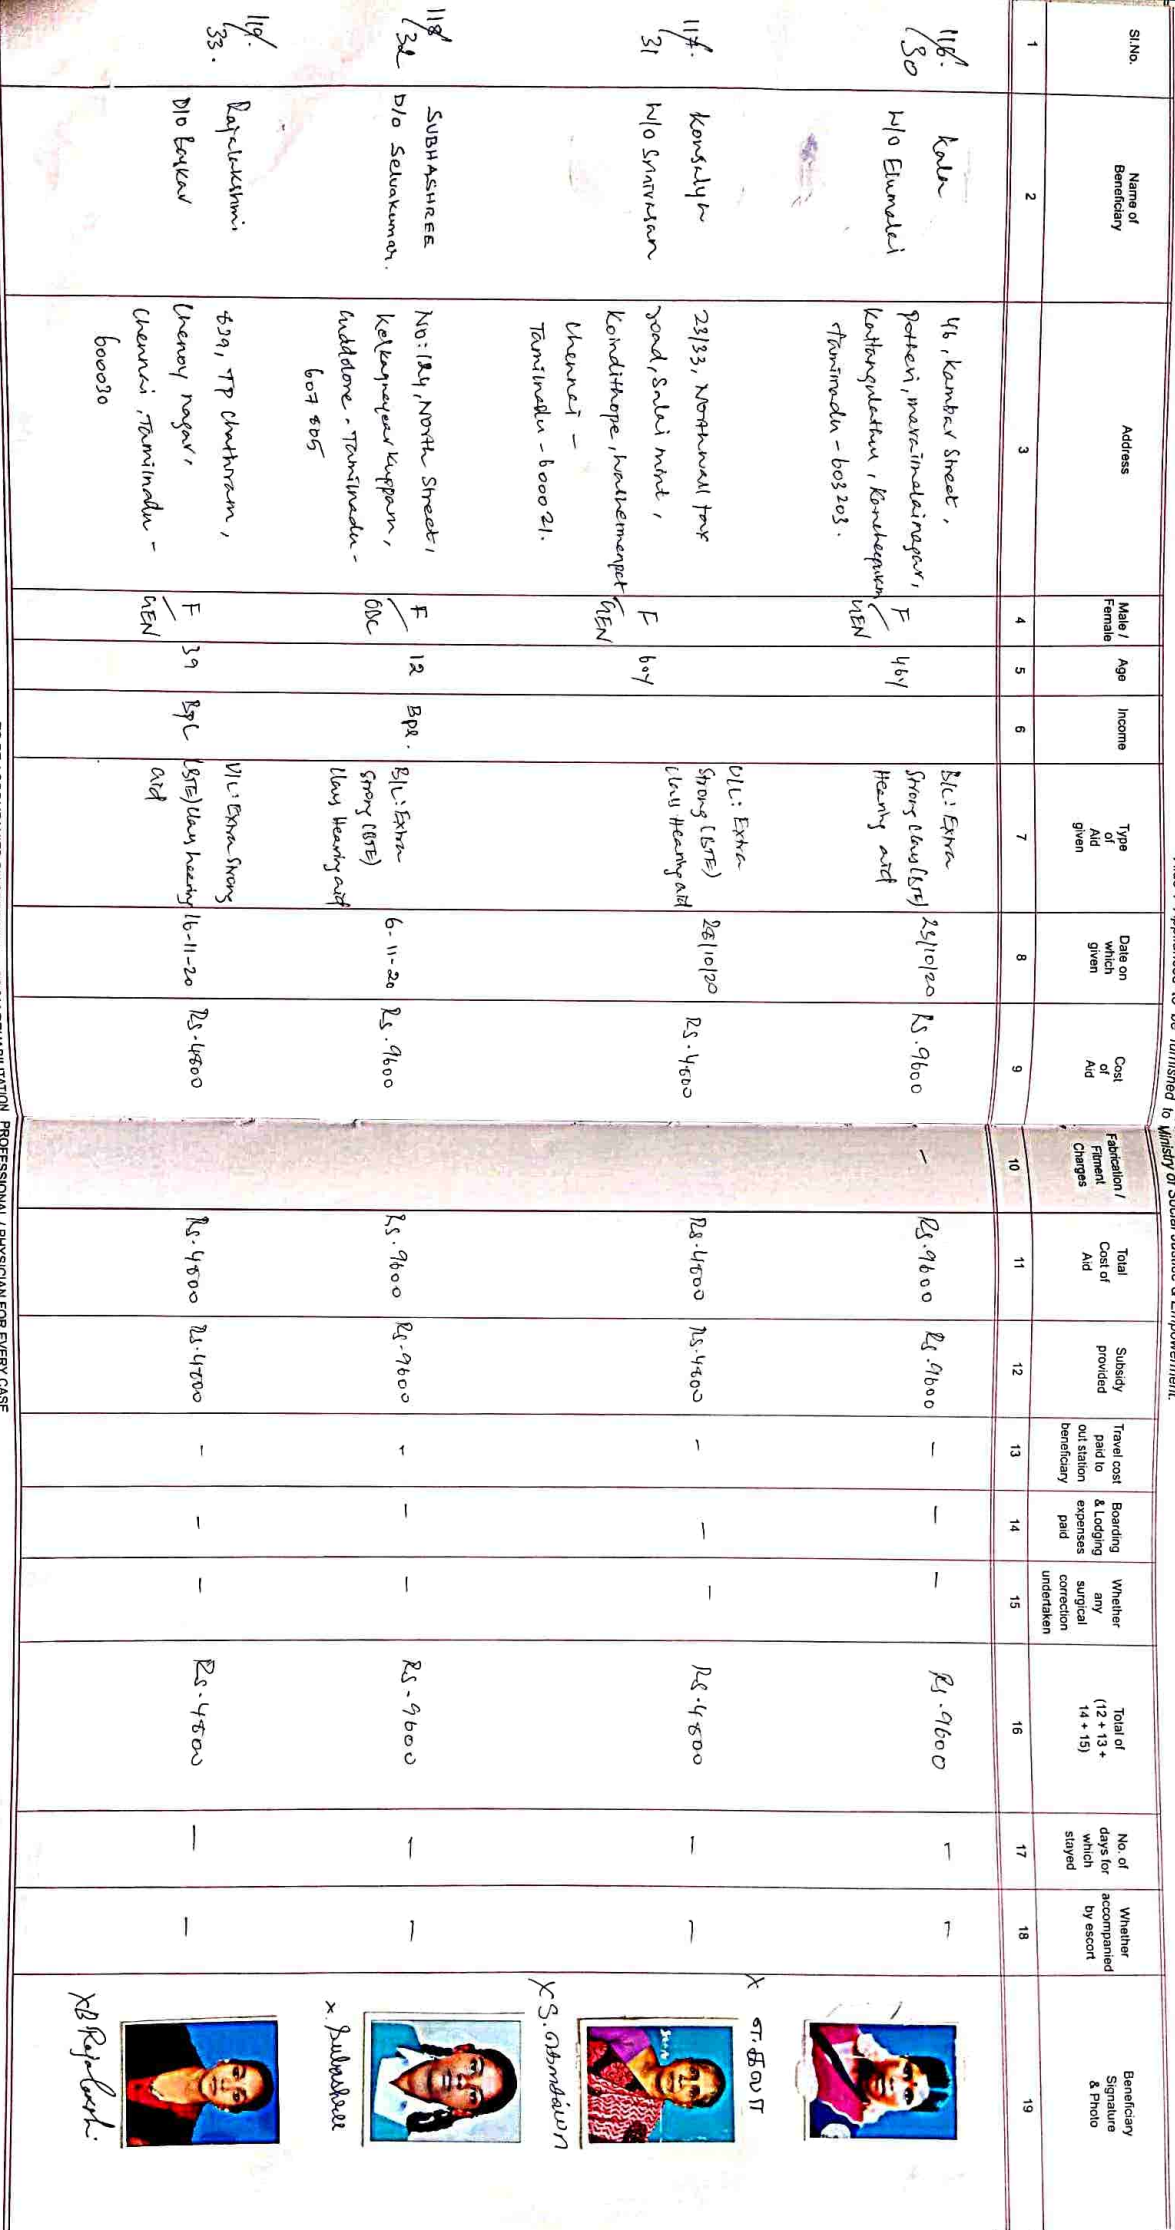 Aids / Appliances to be furnished to Ministry of Social Justice & Empowerment.
Sl.No.
Name of
Beneficiary
Address
Male /
Female
Age
Income
Type
of
Aid
given
Date on
which
given
Cost
of
Aid
Fabrication /
Fitment
Charges
Total
Cost of
Aid
Subsidy
provided
Travel cost
paid to
out station
beneficiary
Boarding
& Lodging
expenses
paid
Whether
any
surgical
correction
undertaken
Total of
(12 + 13 +
14 + 15)
No. of
days for
which
stayed
Whether
accompanied
by escort
Beneficiary
Signature
& Photo
1 2 3 4 5 6 7 8 9 10 11 12 13 14 15 16 17 18 19
116.
/30
Kala
W/O Elumalai
46, Kambar Street,
Potheri, maraimalainagar,
Kattangulathu, Kancheepuram
Tamilnadu - 603203.
F
GEN
46Y
B/L: Extra
Strong Class (BTE)
Hearing aid
23/10/20
Rs. 9600
-
Rs. 9600
Rs. 9600
-
-
-
Rs. 9600
-
-
x எ. கலா
117.
31
Konsalya
W/O Srinivasan
23/33, North wall tax
road, Salai mint,
Koindithope, washermenpet
Chennai -
Tamilnadu - 600021.
F
GEN
60Y
U/L: Extra
Strong (BTE)
Class Hearing aid
28/10/20
Rs. 4800
Rs. 4800
Rs. 4800
-
-
-
Rs. 4800
-
-
118
/32
SUBHASHREE
D/o Selvakumar.
NO: 124, North Street,
Kuppam,
Cuddolore - Tamilnadu -
607805
F
OBC
12
Bpl.
B/L: Extra
Strong (BTE)
Class Hearing aid
6-11-20
Rs. 9600
Rs. 9600
Rs. 9600
-
-
-
Rs. 9600
-
-
x. Subashree
119.
33.
Rajalakshmi
D/O Baskar
839, TP Chathiram,
Chenoy nagar,
Chennai, Tamilnadu -
600030
F
GEN
39
BPL
U/L: Extra Strong
(BTE) Class hearing
aid
16-11-20
Rs. 4800
Rs. 4800
Rs. 4800
-
-
-
Rs. 4800
-
-
REHABILITATION PROFESSIONAL / PHYSICIAN FOR EVERY CASE